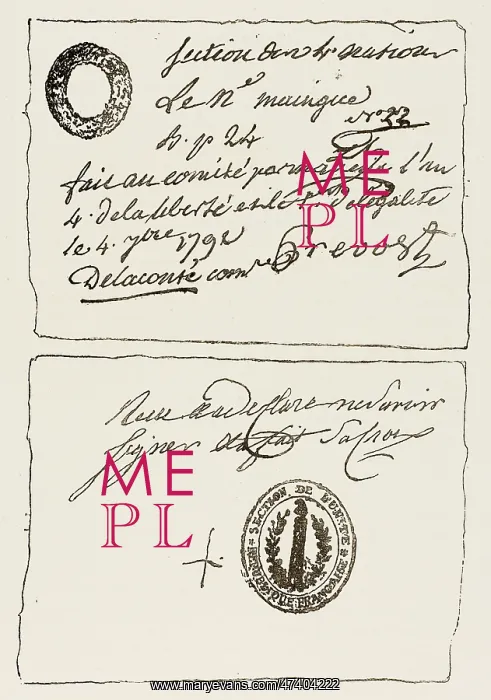 Section des 4 nations
Le Nre maingue
No 22
B. p 24
fait au comité permanent l'an
4. de la liberté et le 1er d'Egalité
le 4. 7bre 1792
Delaconté comre Prevost
ME
PL
a declaré ne savoir
signer et a fait sa croix
ME
PL
SECTION DE L'UNITE
REPUBLIQUE FRANCAISE
www.maryevans.com/47404222